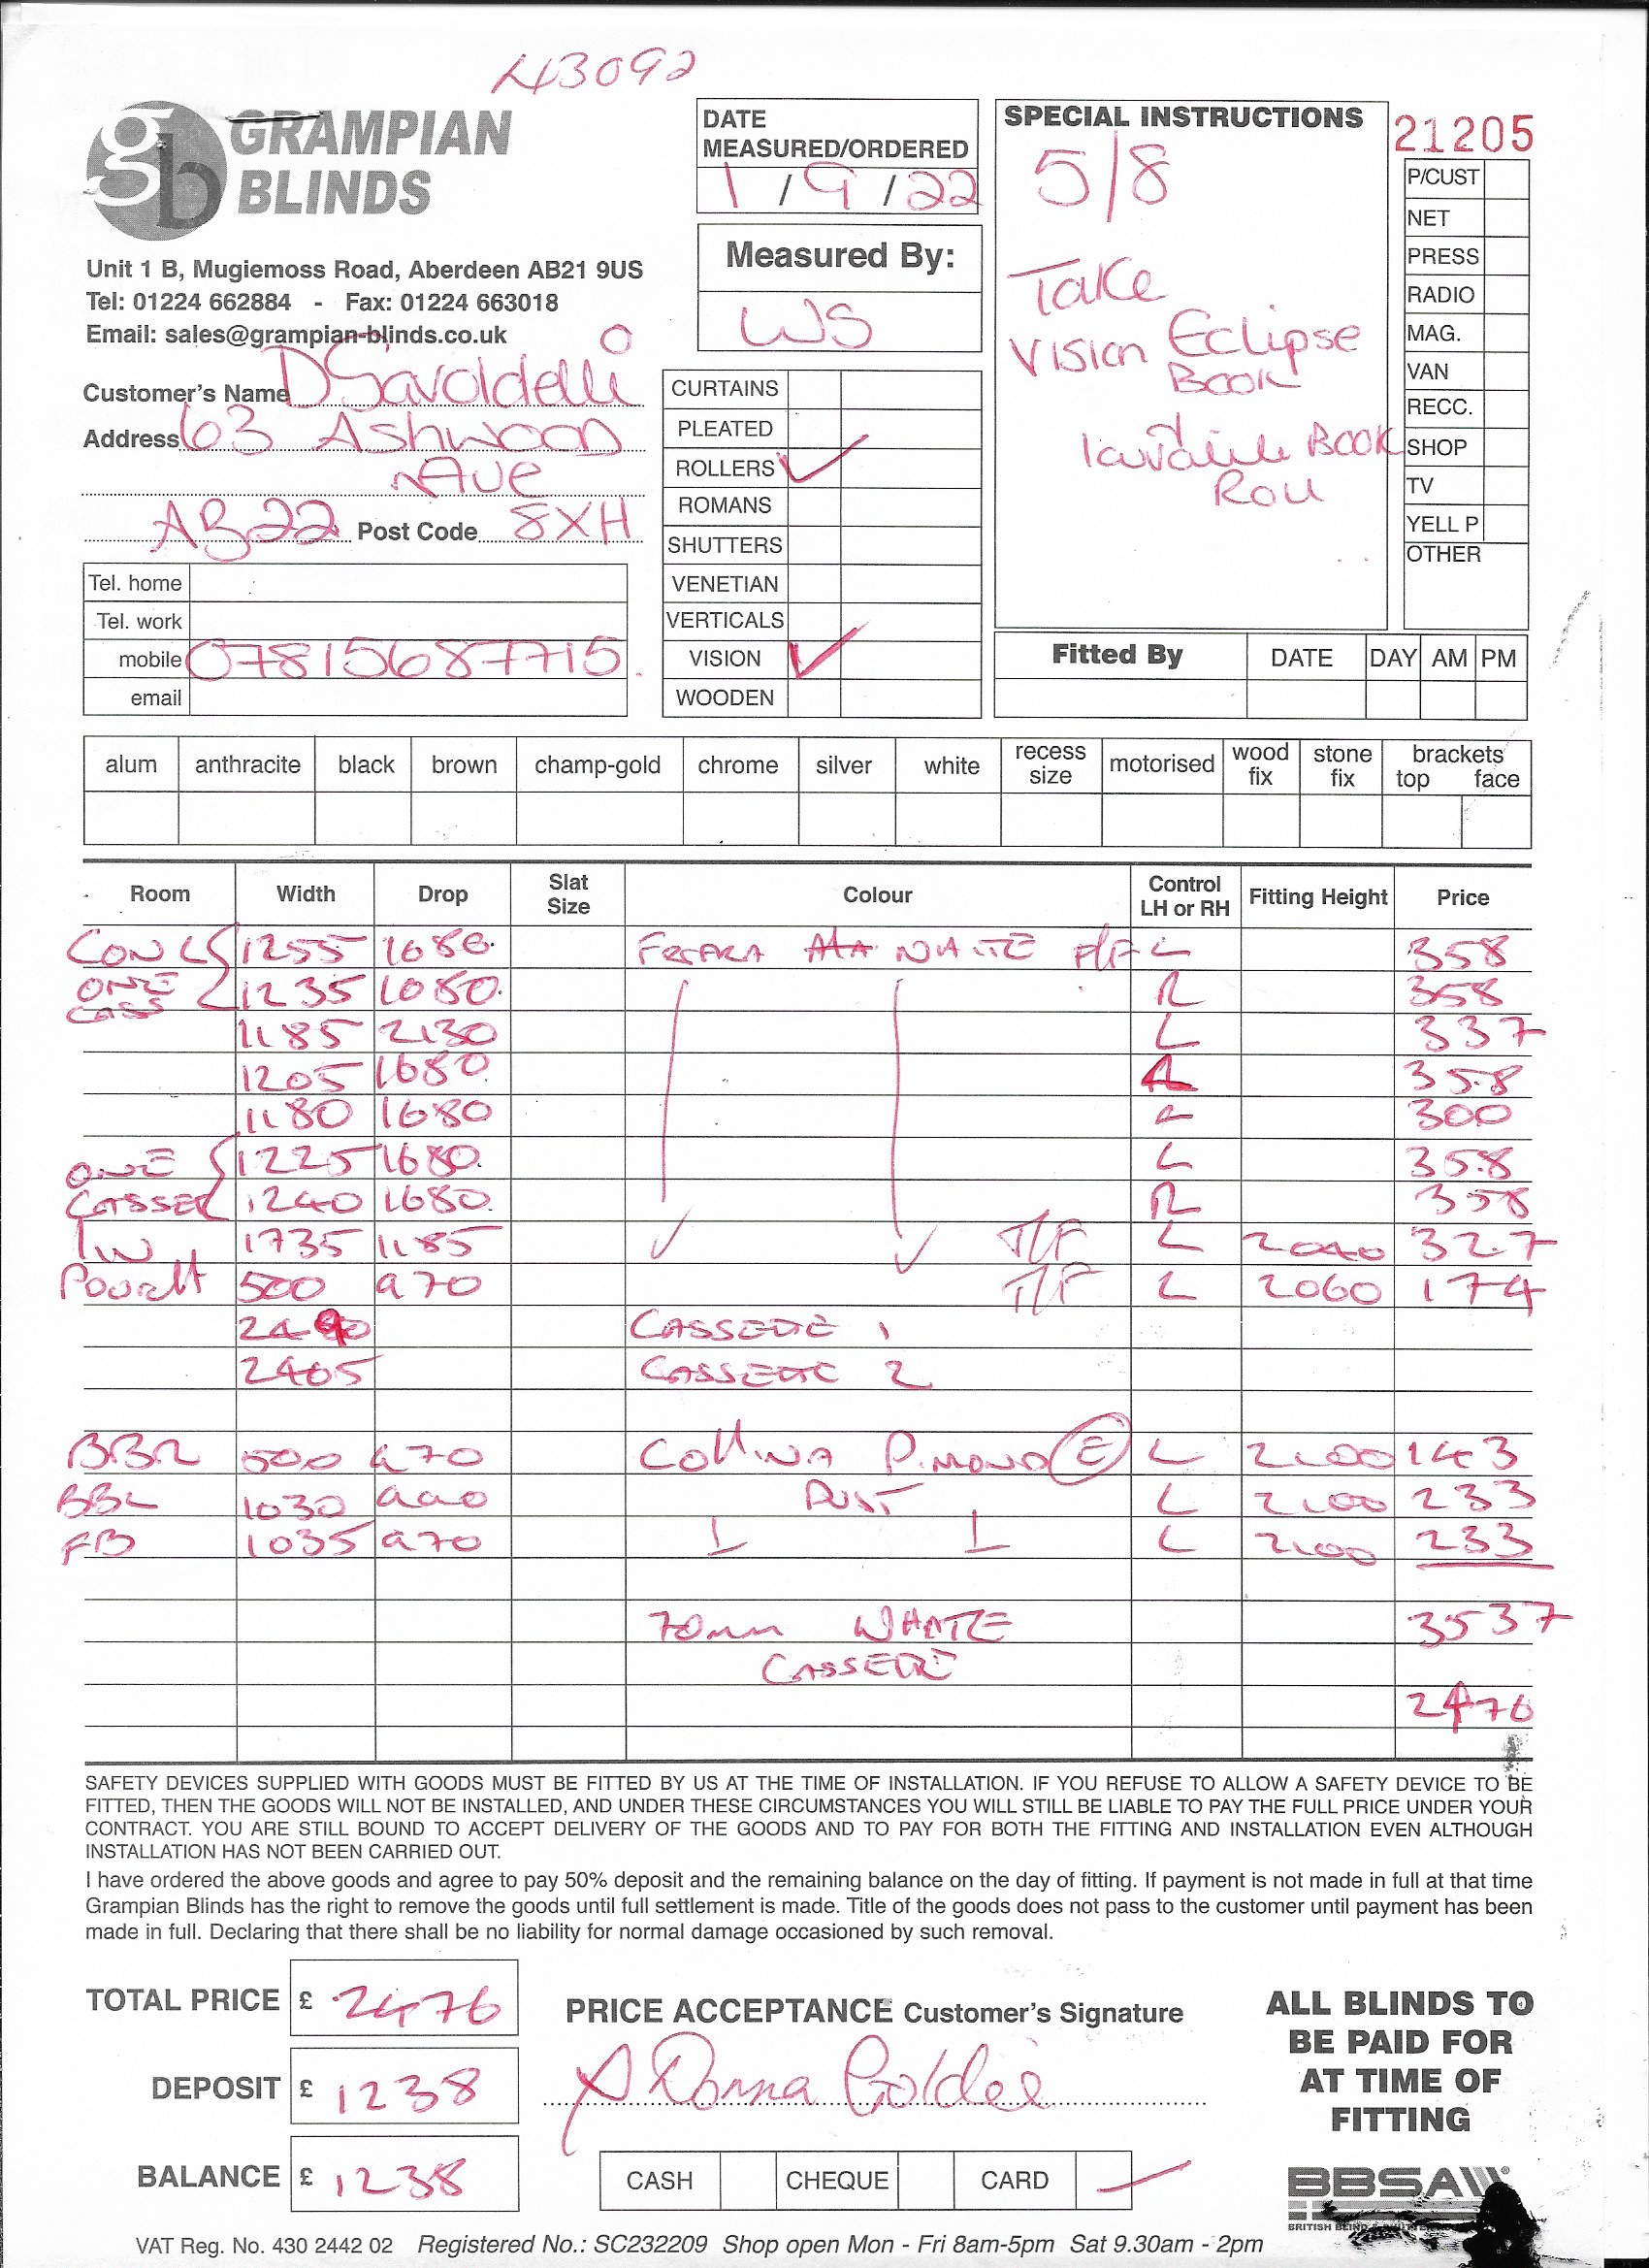 43092
GRAMPIAN
BLINDS
Unit 1 B, Mugiemoss Road, Aberdeen AB21 9US
Tel: 01224 662884 - Fax: 01224 663018
Email: sales@grampian-blinds.co.uk
Customer's Name D Savoldelli
Address 63 Ashwood
Ave
AB22 Post Code 8XH
Tel. home
Tel. work
mobile 07815687715
email
DATE
MEASURED/ORDERED
1/9/22
Measured By:
WS
CURTAINS
PLEATED
ROLLERS ✓
ROMANS
SHUTTERS
VENETIAN
VERTICALS
VISION ✓
WOODEN
SPECIAL INSTRUCTIONS
5/8
Take
Vision Eclipse
Book
Book
Roll
21205
P/CUST
NET
PRESS
RADIO
MAG.
VAN
RECC.
SHOP
TV
YELL P
OTHER
Fitted By DATE DAY AM PM
alum anthracite black brown champ-gold chrome silver white recess size motorised wood fix stone fix brackets top face
Room Width Drop Slat Size Colour Control LH or RH Fitting Height Price
CON 1255 1680 WHITE P/F L 358
ONE CASS 1235 1680 R 358
1185 2130 L 337
1205 1680 358
1180 1680 L 300
ONE 1225 1680 L 358
CASSETT 1240 1680 R 358
1735 1185 T/F L 2040 327
500 970 T/F L 2060 174
2490 CASSETTE 1
2465 CASSETTE 2
BBR 500 970 COLLINA (E) L 2100 143
BBL 1030 990 DUST L 2100 233
FB 1035 970 L 2100 233
70mm WHITE 3537
CASSETTE
2476
SAFETY DEVICES SUPPLIED WITH GOODS MUST BE FITTED BY US AT THE TIME OF INSTALLATION. IF YOU REFUSE TO ALLOW A SAFETY DEVICE TO BE
FITTED, THEN THE GOODS WILL NOT BE INSTALLED, AND UNDER THESE CIRCUMSTANCES YOU WILL STILL BE LIABLE TO PAY THE FULL PRICE UNDER YOUR
CONTRACT. YOU ARE STILL BOUND TO ACCEPT DELIVERY OF THE GOODS AND TO PAY FOR BOTH THE FITTING AND INSTALLATION EVEN ALTHOUGH
INSTALLATION HAS NOT BEEN CARRIED OUT.
I have ordered the above goods and agree to pay 50% deposit and the remaining balance on the day of fitting. If payment is not made in full at that time
Grampian Blinds has the right to remove the goods until full settlement is made. Title of the goods does not pass to the customer until payment has been
made in full. Declaring that there shall be no liability for normal damage occasioned by such removal.
TOTAL PRICE £ 2476
DEPOSIT £ 1238
BALANCE £ 1238
PRICE ACCEPTANCE Customer's Signature
X Donna Goldie
CASH CHEQUE CARD ✓
ALL BLINDS TO
BE PAID FOR
AT TIME OF
FITTING
BBSA
VAT Reg. No. 430 2442 02 Registered No.: SC232209 Shop open Mon - Fri 8am-5pm Sat 9.30am - 2pm